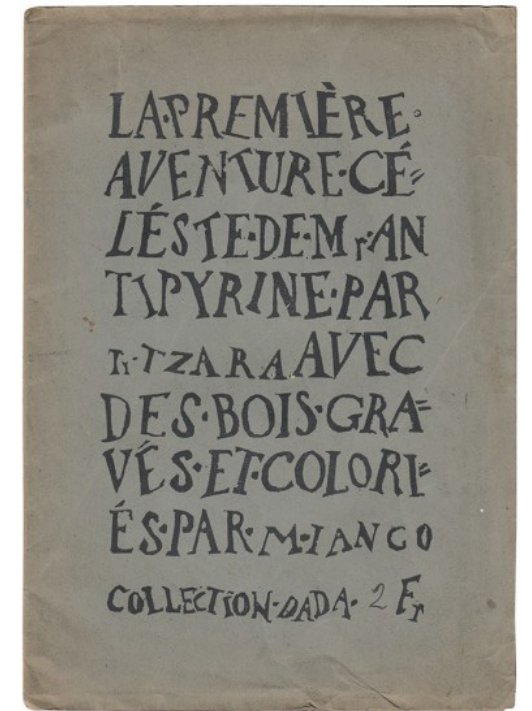 LA·PREMIÈRE·
AVENTURE·CÉ=
LÉSTE·DE·Mr·AN
TIPYRINE·PAR
Tr·TZARA AVEC
DES·BOIS·GRA=
VÉS·ET·COLORI=
ÉS·PAR·M·IANCO
COLLECTION·DADA· 2 Fr